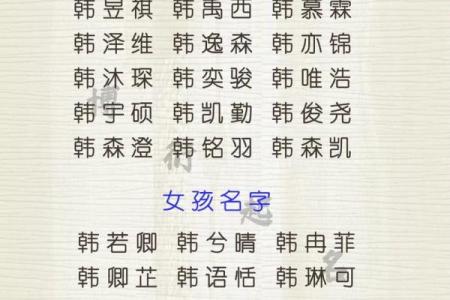 韩昱祺 韩禹西 韩慕霖
韩泽维 韩逸森 韩亦锦
韩沐琛 韩奕骏 韩唯浩
韩宇硕 韩凯勤 韩俊尧
韩森澄 韩铭羽 韩森凯
女孩名字
韩若卿 韩兮晴 韩冉菲
韩卿芷 韩语恬 韩琳可